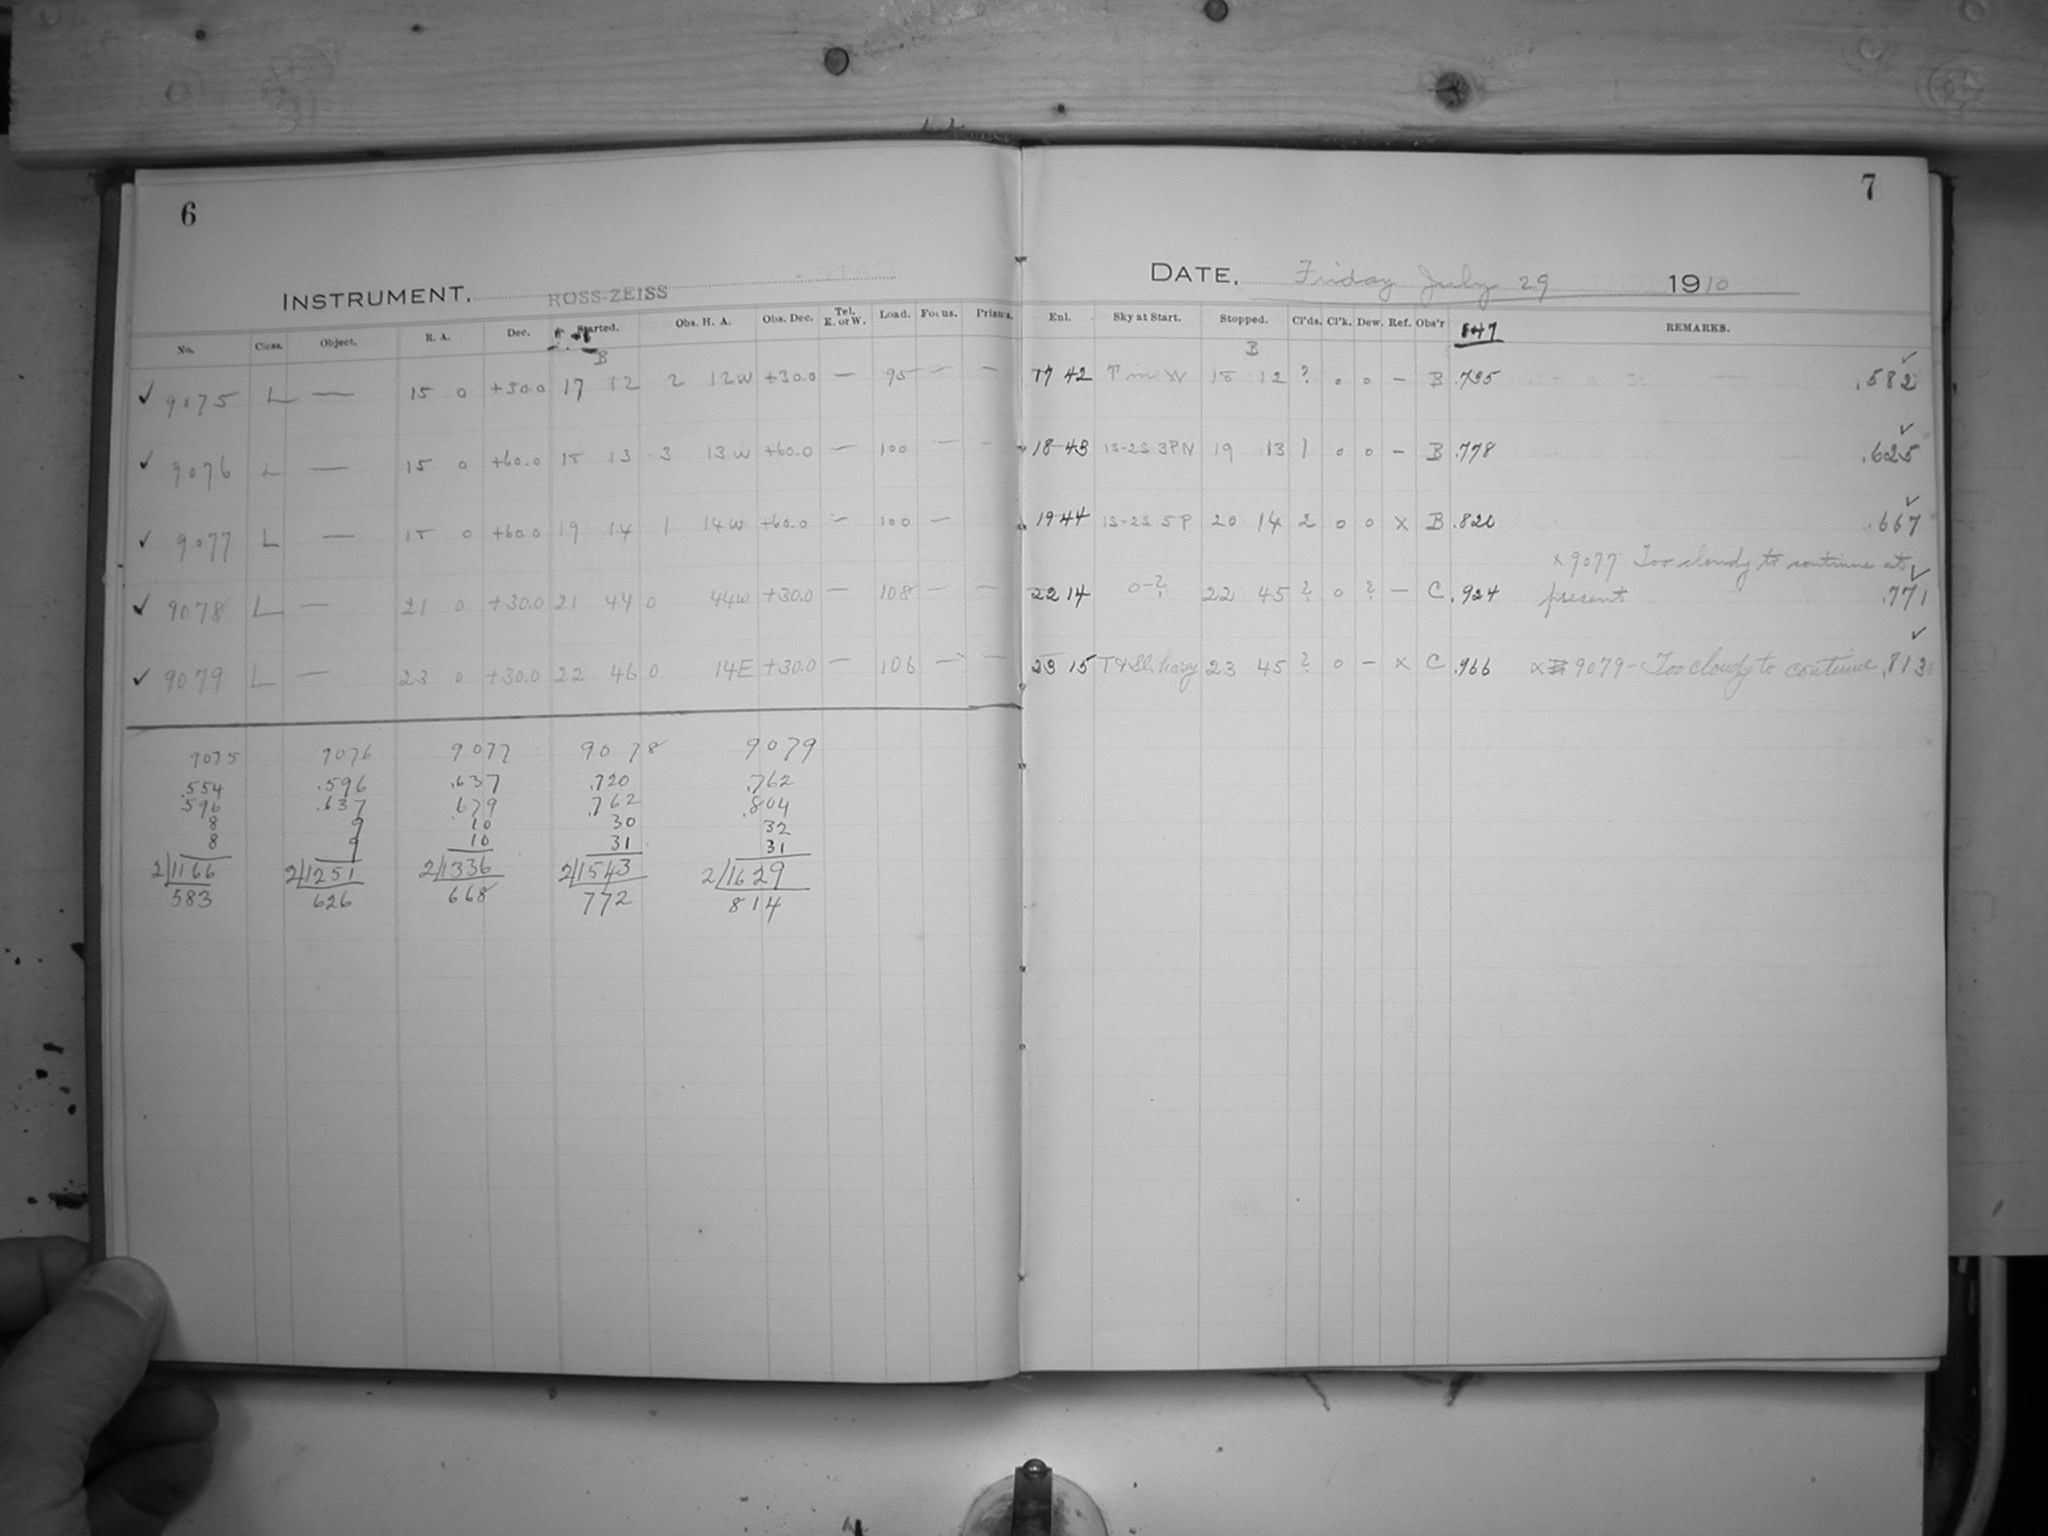 6
INSTRUMENT, ROSS-ZEISS
No. Class. Object. R. A. Dec. Started. Obs. H. A. Obs. Dec. Tel. E. or W. Load. Focus. Prisms.
B
✓ 9075 L — 15 0 +30.0 17 12 2 12W +30.0 — 95 — —
✓ 9076 L — 15 0 +60.0 18 13 3 13W +60.0 — 100 — —
✓ 9077 L — 18 0 +60.0 19 14 1 14W +60.0 — 100 —
✓ 9078 L — 21 0 +30.0 21 44 0 44W +30.0 — 108 — —
✓ 9079 L — 23 0 +30.0 22 46 0 14E +30.0 — 106 — —
9075 9076 9077 9078 9079
.554 .596 .637 .720 .762
.596 .637 .679 .762 .804
8 9 10 30 32
8 9 10 31 31
2/1166 2/1251 2/1336 2/1543 2/1629
583 626 668 772 814
7
DATE, Friday July 29 1910
Enl. Sky at Start. Stopped. Cl'ds. Cl'k. Dew. Ref. Obs'r REMARKS.
B
17 42 T in W 18 12 ? 0 0 — B .735 .582 ✓
18 43 1S-2S 3PN 19 13 1 0 0 — B .778 .625 ✓
19 44 1S-2S 5P 20 14 2 0 0 x B .820 .667 ✓
x 9077 Too cloudy to continue at
22 14 0-? 22 45 ? 0 ? — C .924 present .771 ✓
23 15 hazy 23 45 ? 0 — x C .966 x 9079 - Too cloudy to continue .813 ✓